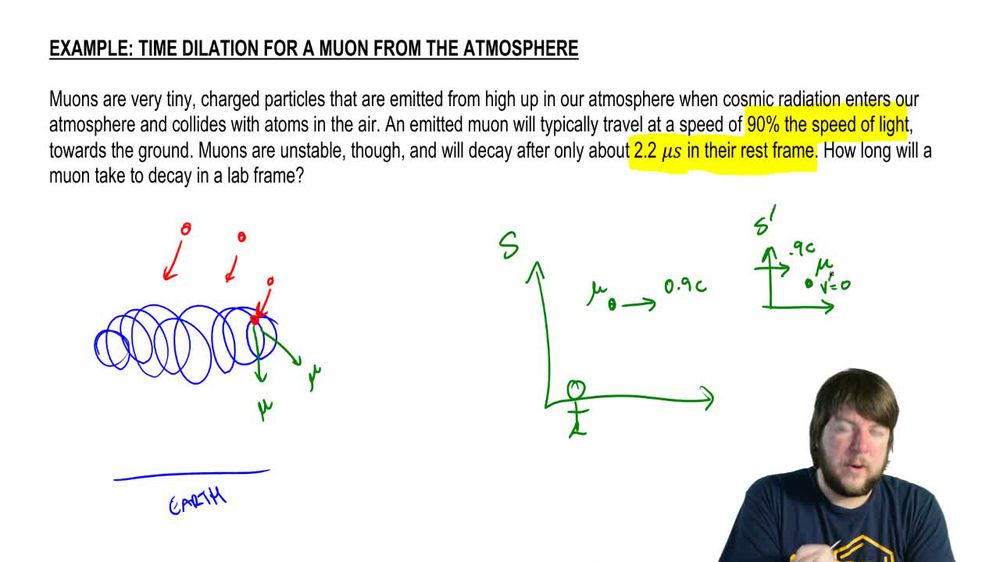 EXAMPLE: TIME DILATION FOR A MUON FROM THE ATMOSPHERE
Muons are very tiny, charged particles that are emitted from high up in our atmosphere when cosmic radiation enters our
atmosphere and collides with atoms in the air. An emitted muon will typically travel at a speed of 90% the speed of light,
towards the ground. Muons are unstable, though, and will decay after only about 2.2 μs in their rest frame. How long will a
muon take to decay in a lab frame?
S
μ
0.9c
S'
.9c
μ
v'=0
μ
μ
EARTH